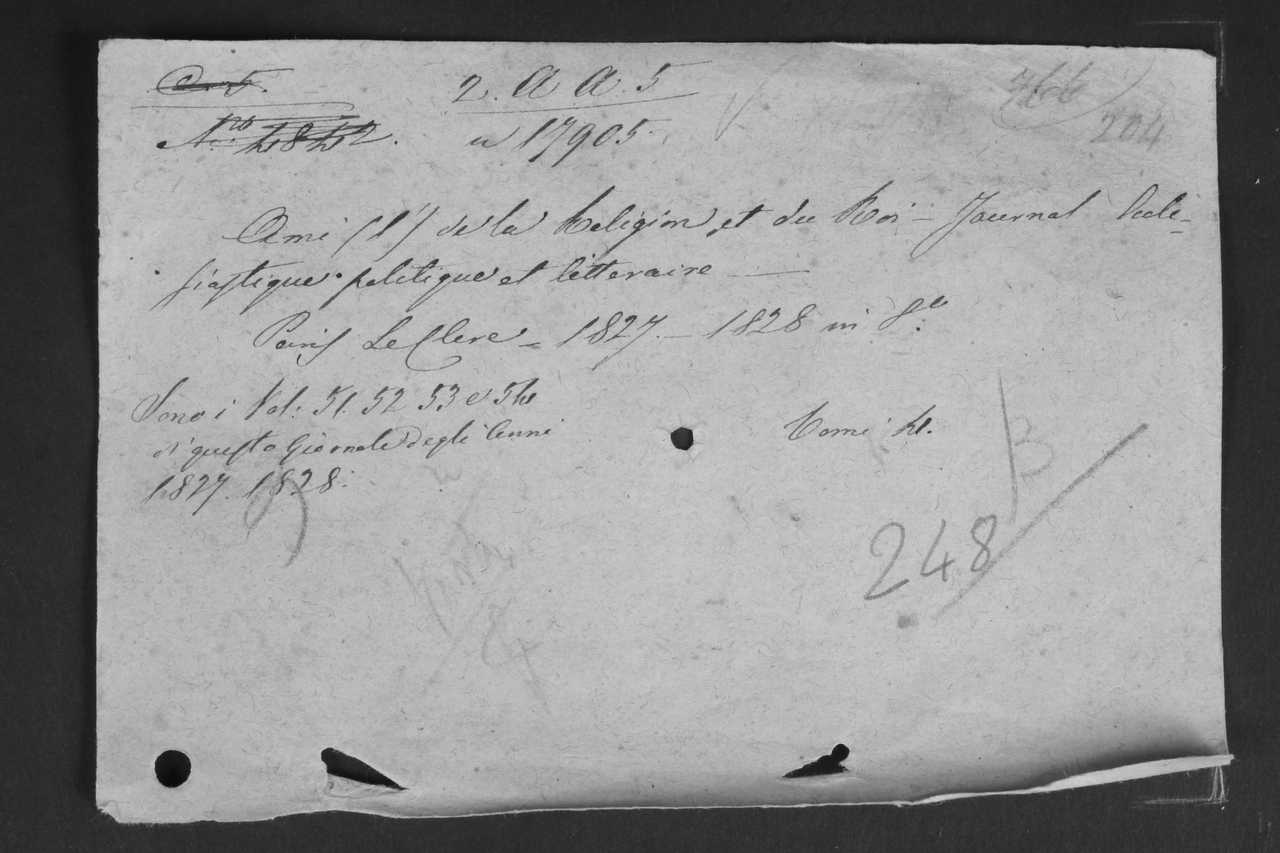 2. A A. 5
204
n 17905.
Ami (l') de la Religion et du Roi – Journal Eccle-
siastique politique et litteraire —
Paris LeClere – 1827. – 1828 in 8.º
Sono i Vol: 51. 52 53 e 54
di questo Giornale degli Anni
Tomi 4.
1827. 1828.
B
248